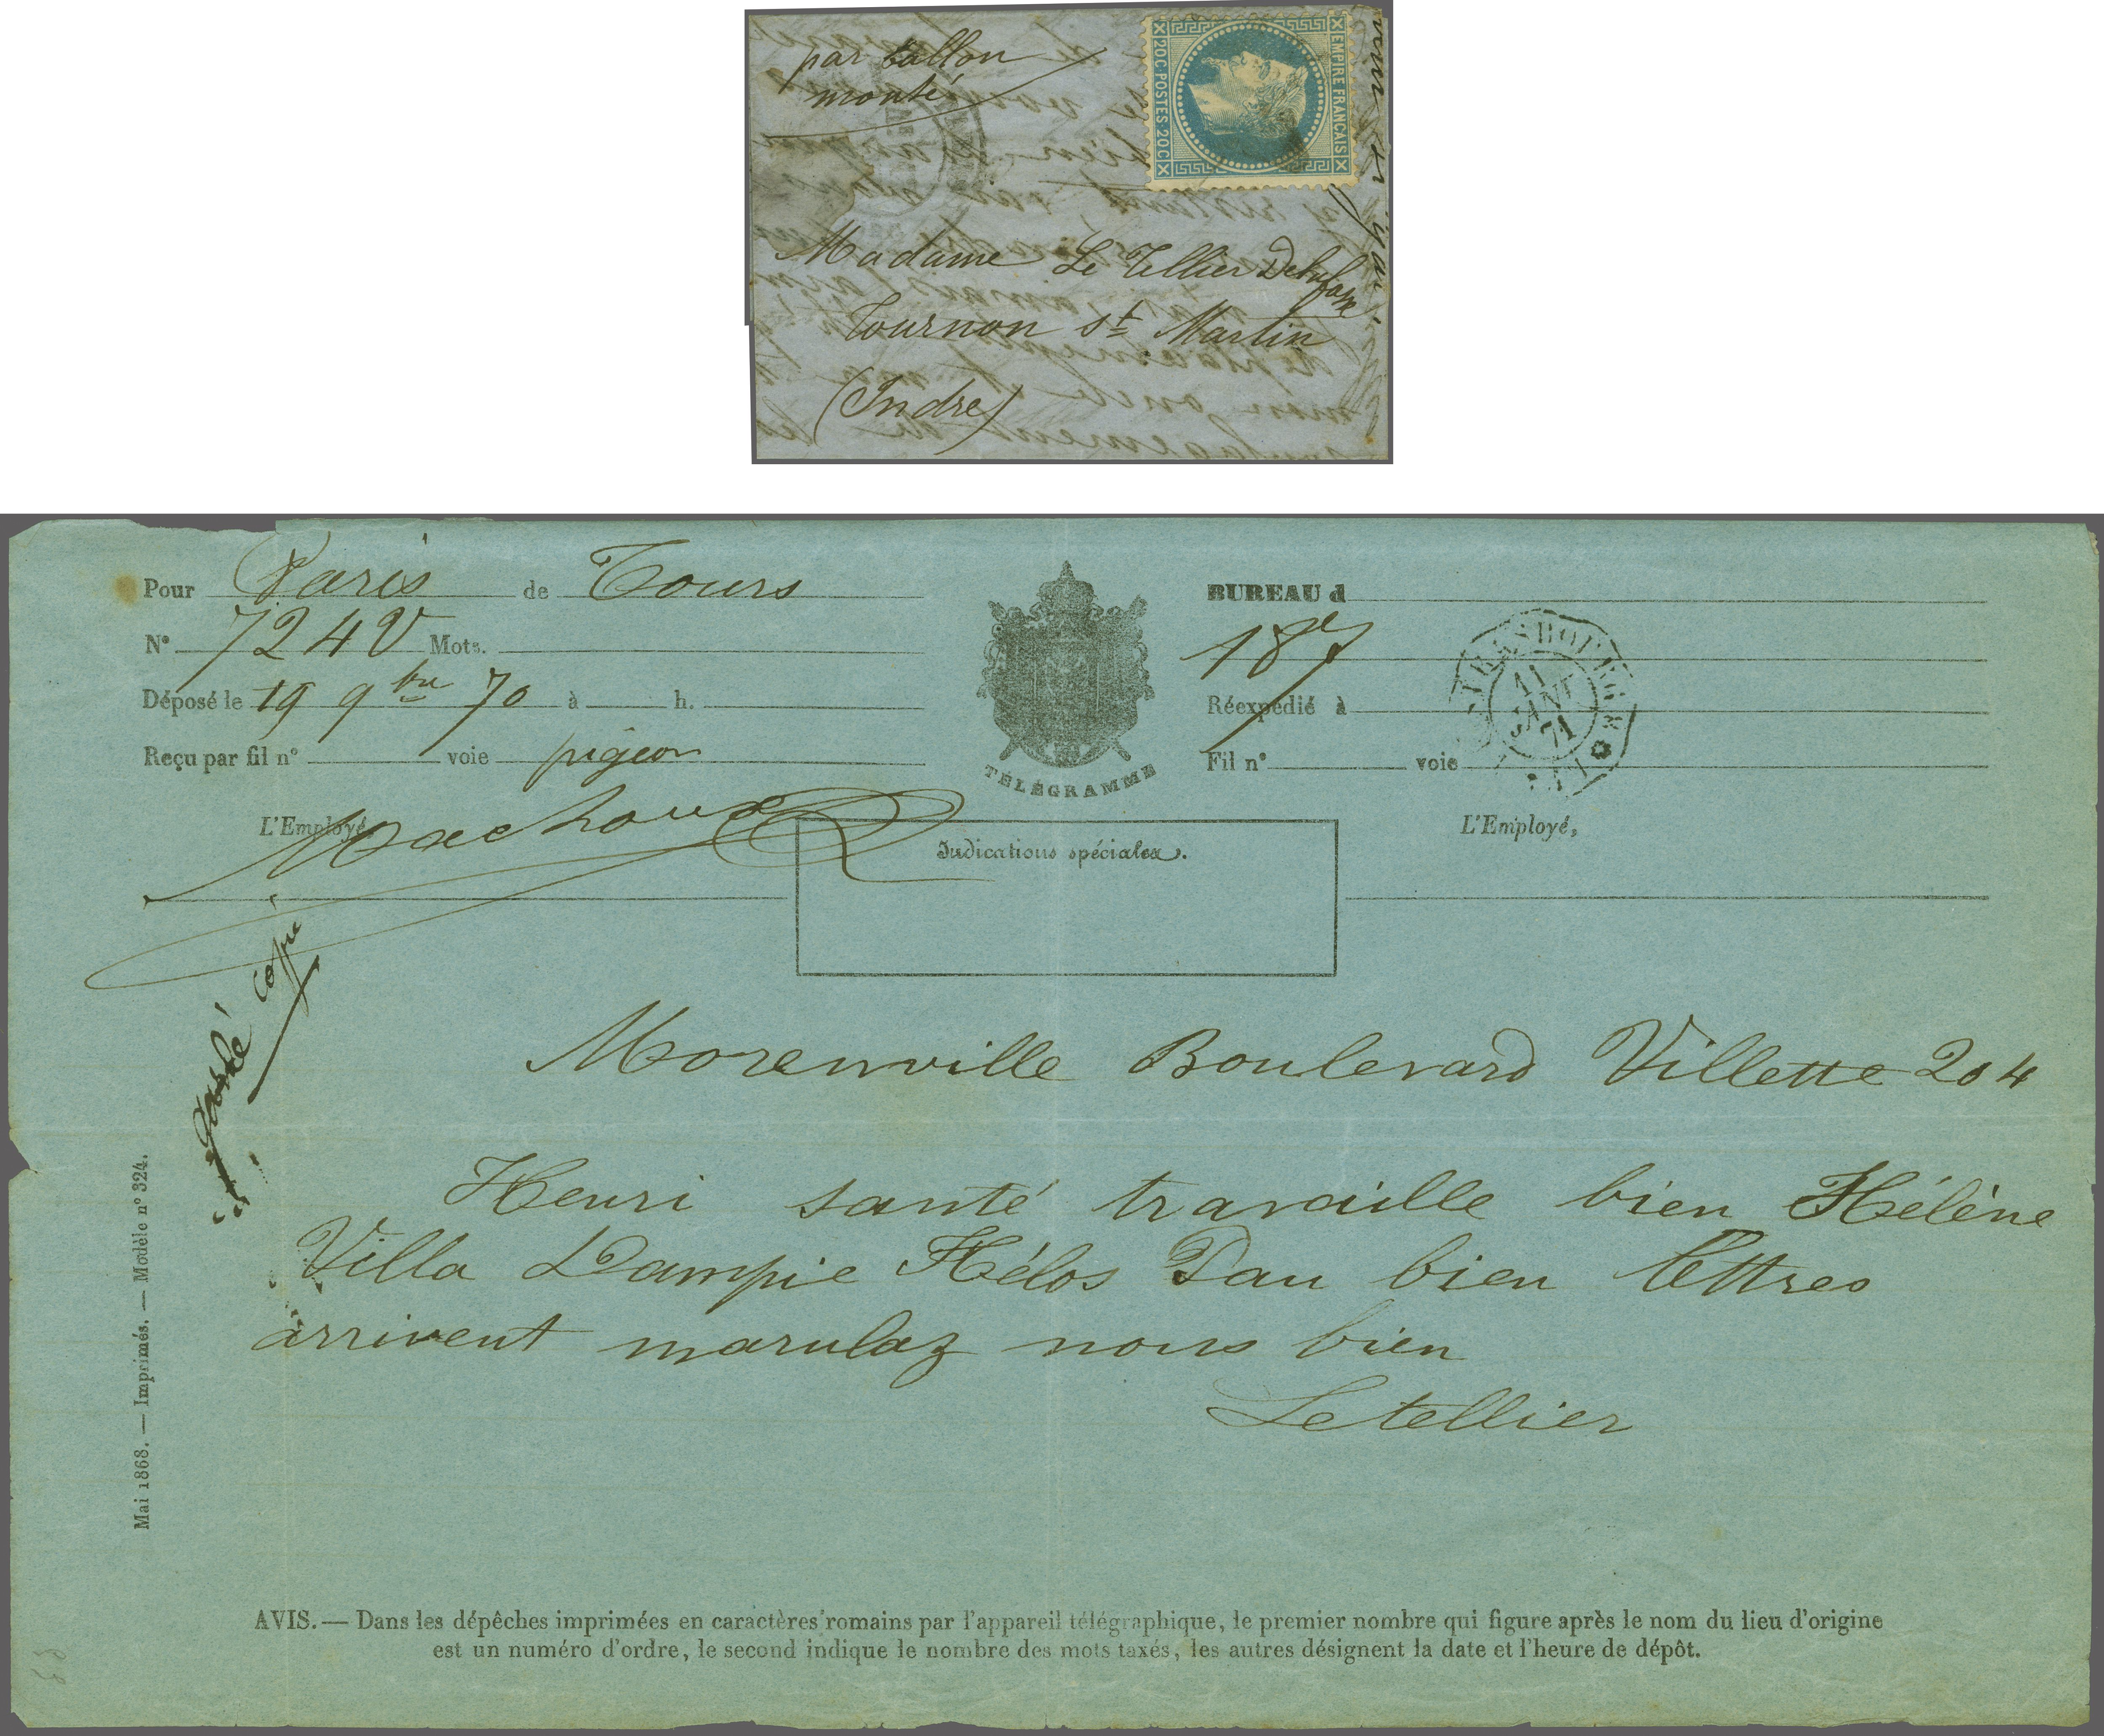 par ballon
monté
EMPIRE FRANCAIS
20 C POSTES 20 C
Madame Le Tellier
Tournon St Martin
(Indre)
Pour Paris de Tours
N° 7240 Mots.
Déposé le 19 9bre 70 à h.
Reçu par fil n° voie pigeon
L'Employé
TÉLÉGRAMME
BUREAU d
187
Réexpédié à
Fil n° voie
L'Employé,
STRASBOURG
11
JANV
71
Indications spéciales.
copie
Morenville Boulevard Villette 204
Henri santé travaille bien Hélène
Villa Dampie Hélos Pau bien lettres
arrivent marulaz nous bien
Letellier
Mai 1868. — Imprimés. — Modèle n° 324.
AVIS. — Dans les dépêches imprimées en caractères romains par l'appareil télégraphique, le premier nombre qui figure après le nom du lieu d'origine
est un numéro d'ordre, le second indique le nombre des mots taxés, les autres désignent la date et l'heure de dépôt.